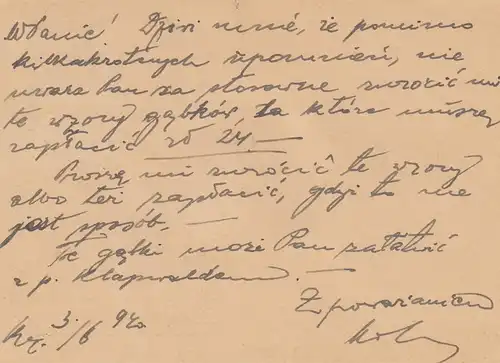 W Panie! Dziwi mnie, że pomimo
kilkakrotnych upomnień, nie
uważa Pan za stosowne zwrócić mi
te wzory gąbków, za które muszę
zapłacić zł 24.—
Proszę mi zwrócić te wzory
albo też zapłacić, gdyż to nie
jest sposób. —
Te gąbki może Pan załatwić
z p. Klapwaldem. —
Z poważaniem
Kr. 3./6 940